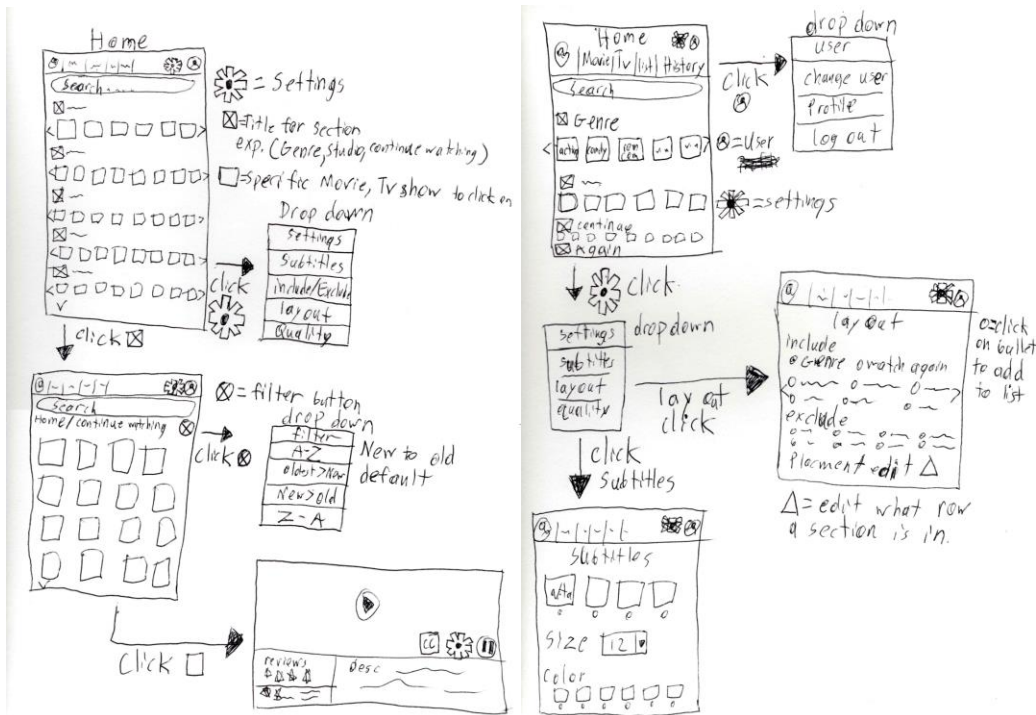 Home
Search....
= Settings
=Title for section
exp. (Genre, Studio, continue watching)
=Specific Movie, Tv show to click on
Drop down
Settings
Subtitles
include/Exclude
layout
Quality
click
click
Search
Home/continue watching
= filter button
drop down
filter
A-Z
oldest>New
New>old
Z-A
click
New to old
default
click
CC
reviews
Desc
Home
|Movie|Tv|list|History
Search
Genre
action
comdy
rom
com
continue
Again
click
= User
=settings
drop down
user
change user
Profile
log out
click
dropdown
settings
subtitles
layout
quality
layout
click
click
Subtitles
layout
include
Genre o watch again
exclude
Placment edit Δ
o=click
on bullet
to add
to list
Δ= edit what row
a section is in.
Subtitles
Size 12
Color